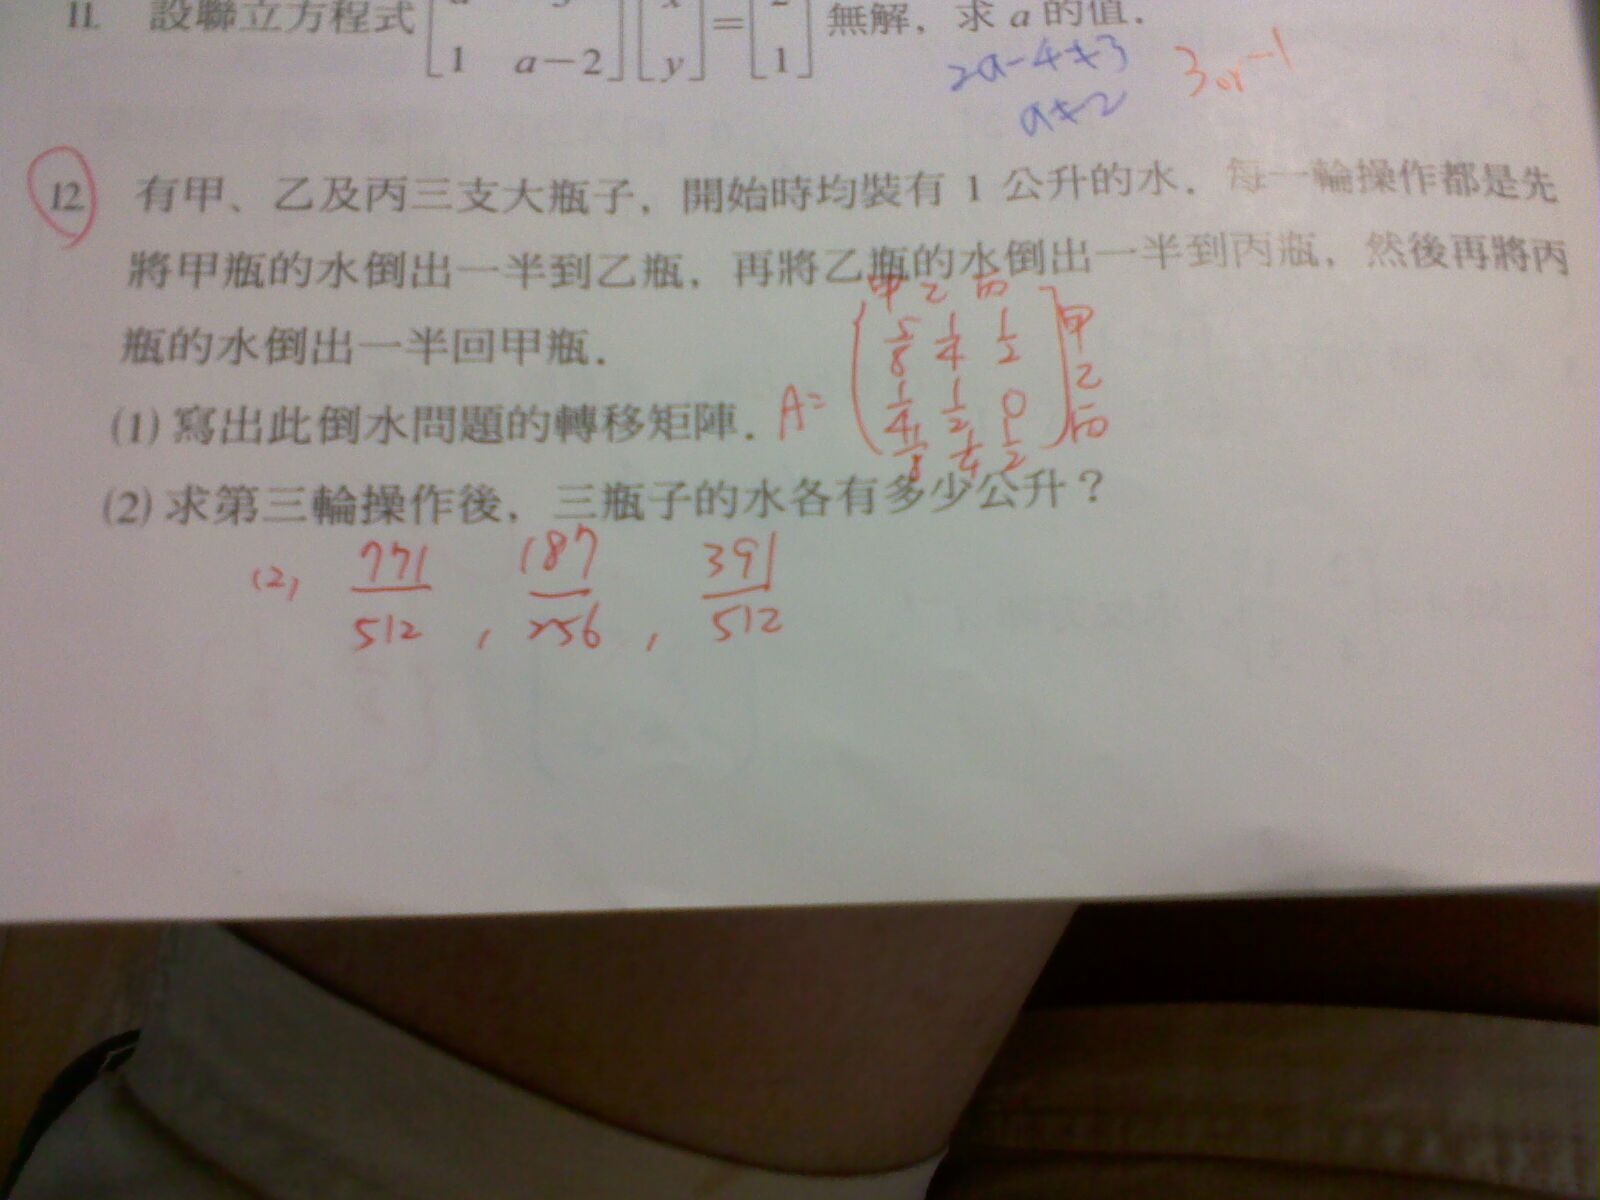 11. 設聯立方程式 [ 1 a-2 ] [ x y ] = [ 2 1 ] 無解，求 a 的值.
2a-4≠3 3or-1
a≠2
12 有甲、乙及丙三支大瓶子，開始時均裝有 1 公升的水．每一輪操作都是先
將甲瓶的水倒出一半到乙瓶，再將乙瓶的水倒出一半到丙瓶，然後再將丙
瓶的水倒出一半回甲瓶．
甲 乙 丙
5/8 1/4 1/2 甲
1/4 1/2 0 乙
1/8 1/4 1/2 丙
(1) 寫出此倒水問題的轉移矩陣． A=
(2) 求第三輪操作後，三瓶子的水各有多少公升？
(2) 771/512 , 187/256 , 391/512